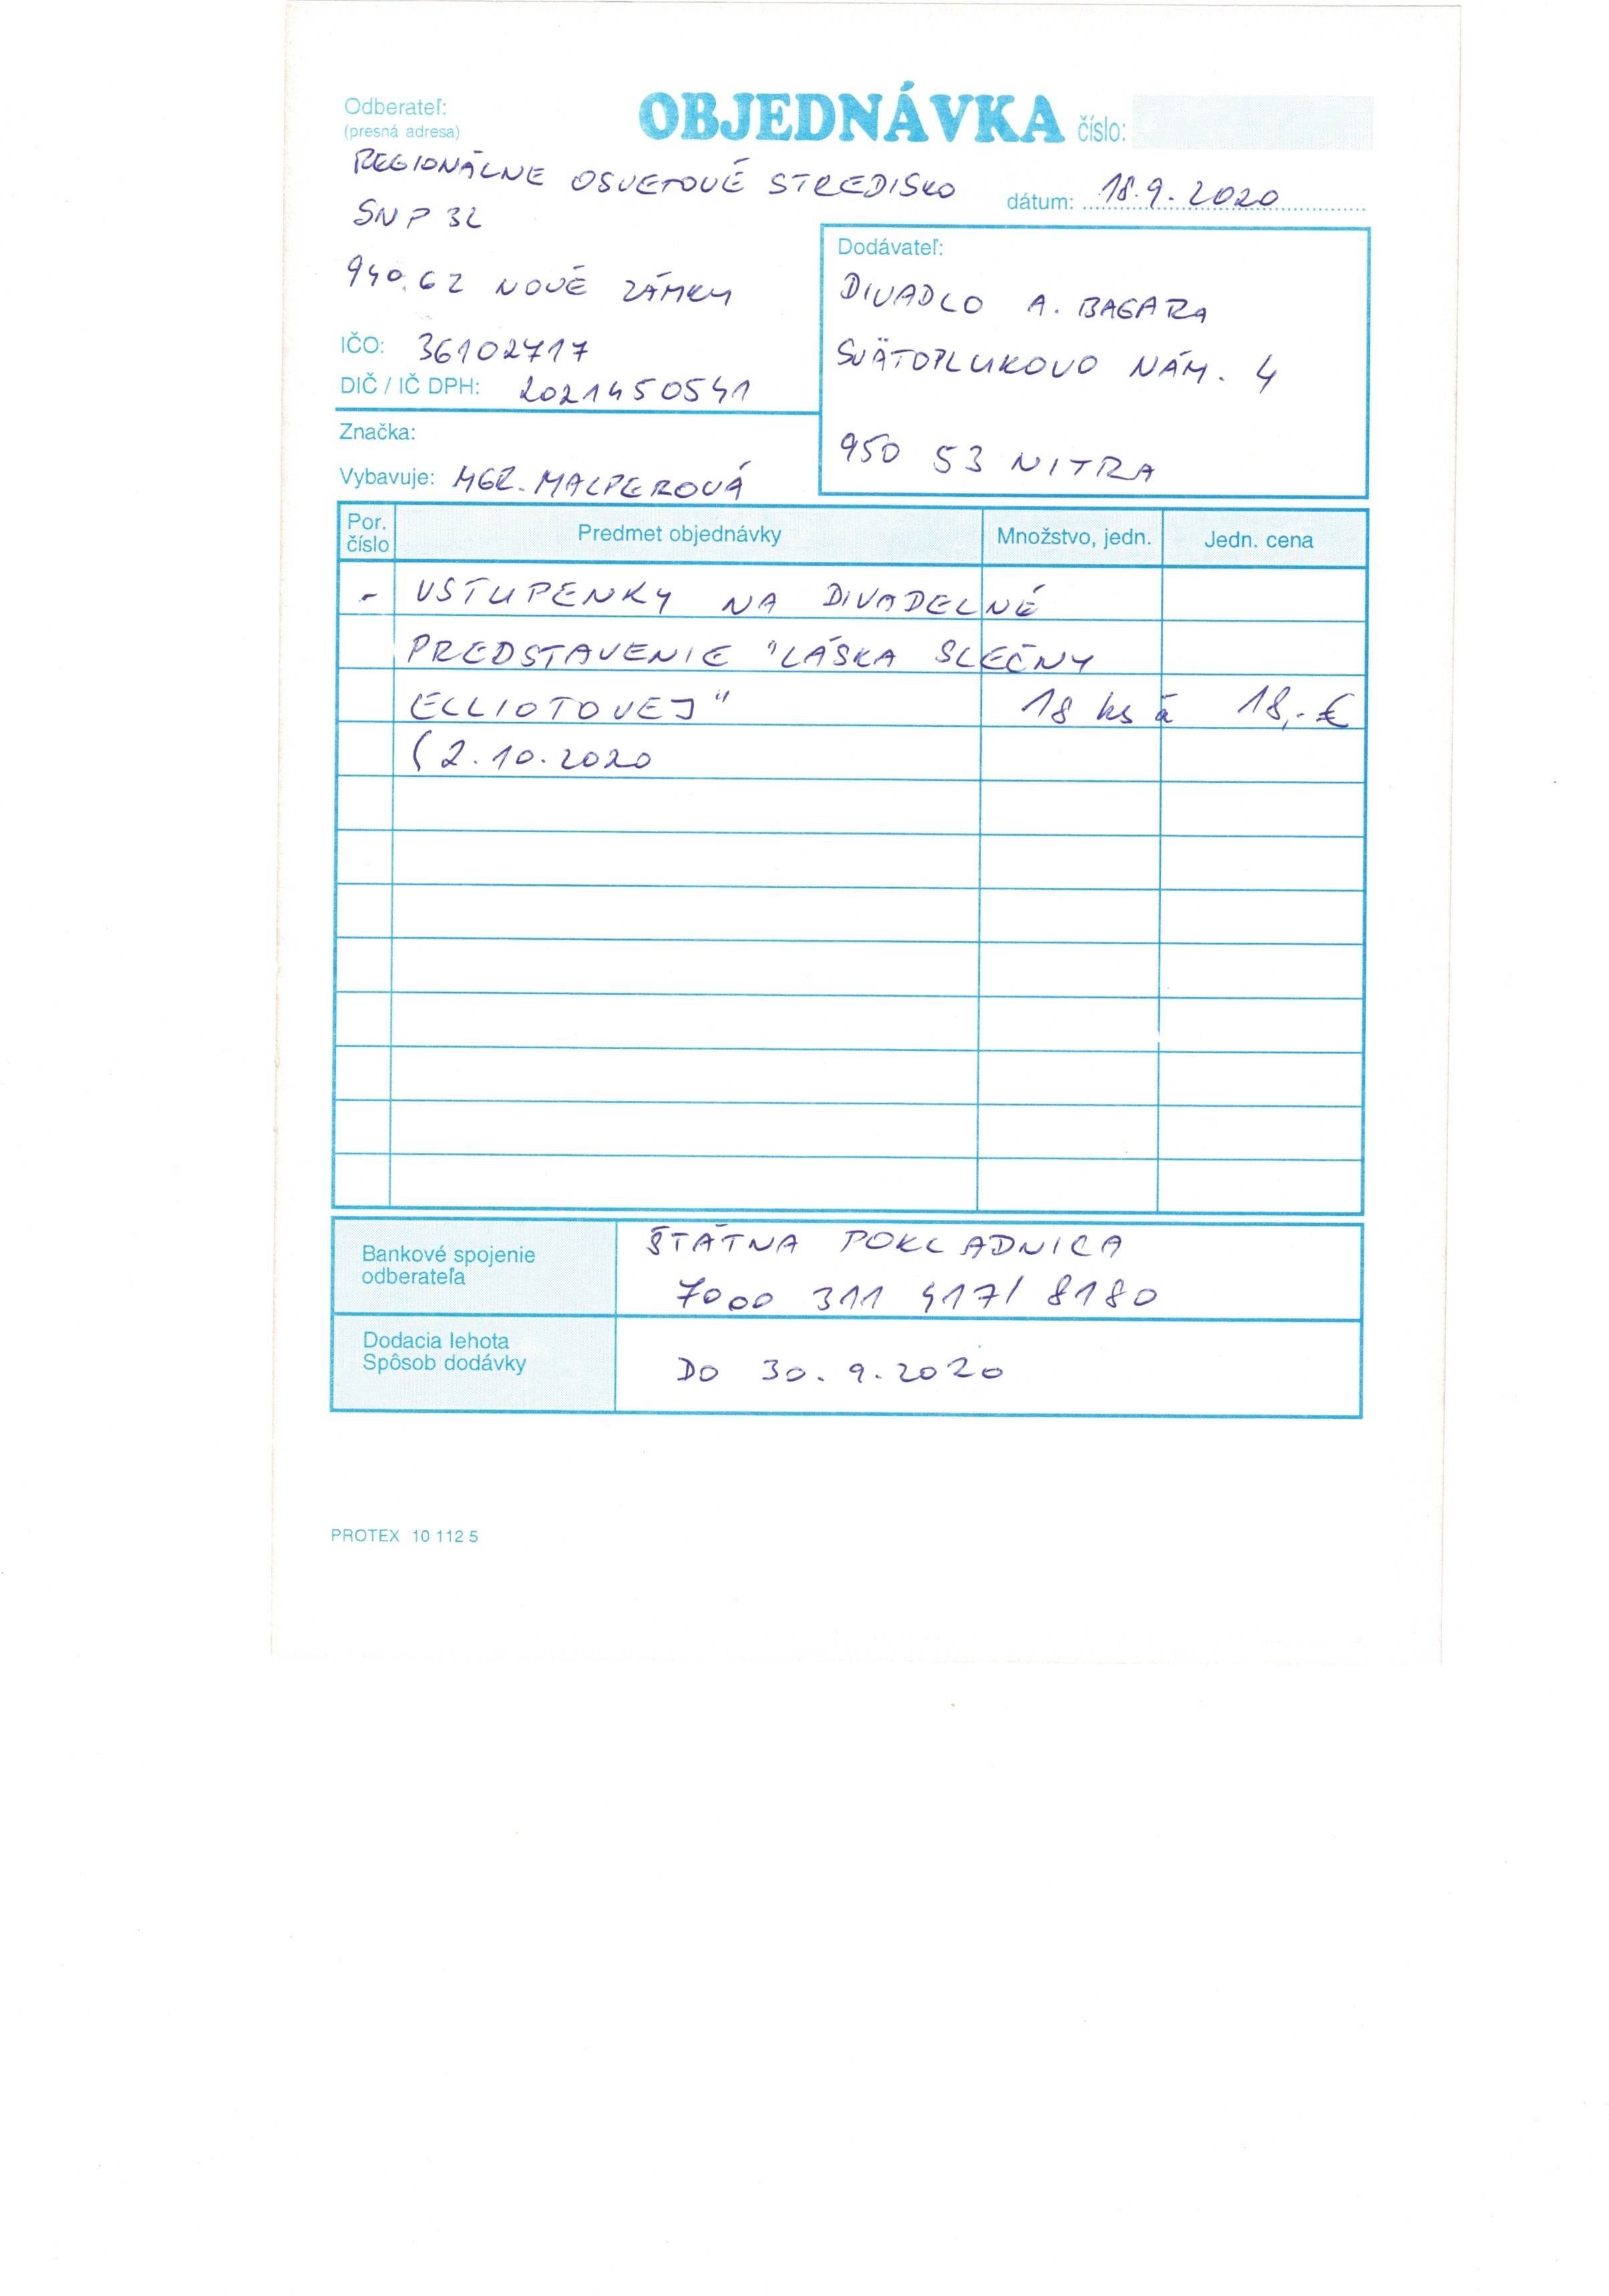 Odberateľ:
(presná adresa)
OBJEDNÁVKA číslo:
REGIONÁLNE OSVETOVÉ STREDISKO
dátum: 18.9.2020
SNP 32
940 62 NOVÉ ZÁMKY
IČO: 36102717
DIČ / IČ DPH: 2021450541
Značka:
Vybavuje: MGR. MALPEROVÁ
Dodávateľ:
DIVADLO A. BAGARA
SVÄTOPLUKOVO NÁM. 4
950 53 NITRA
Por. číslo Predmet objednávky Množstvo, jedn. Jedn. cena
- VSTUPENKY NA DIVADELNÉ
PREDSTAVENIE "LÁSKA SLEČNY
ELLIOTOVEJ" 18 ks á 18,-€
(2.10.2020
Bankové spojenie
odberateľa
ŠTÁTNA POKLADNICA
7000 311 417/ 8180
Dodacia lehota
Spôsob dodávky
DO 30.9.2020
PROTEX 10 112 5